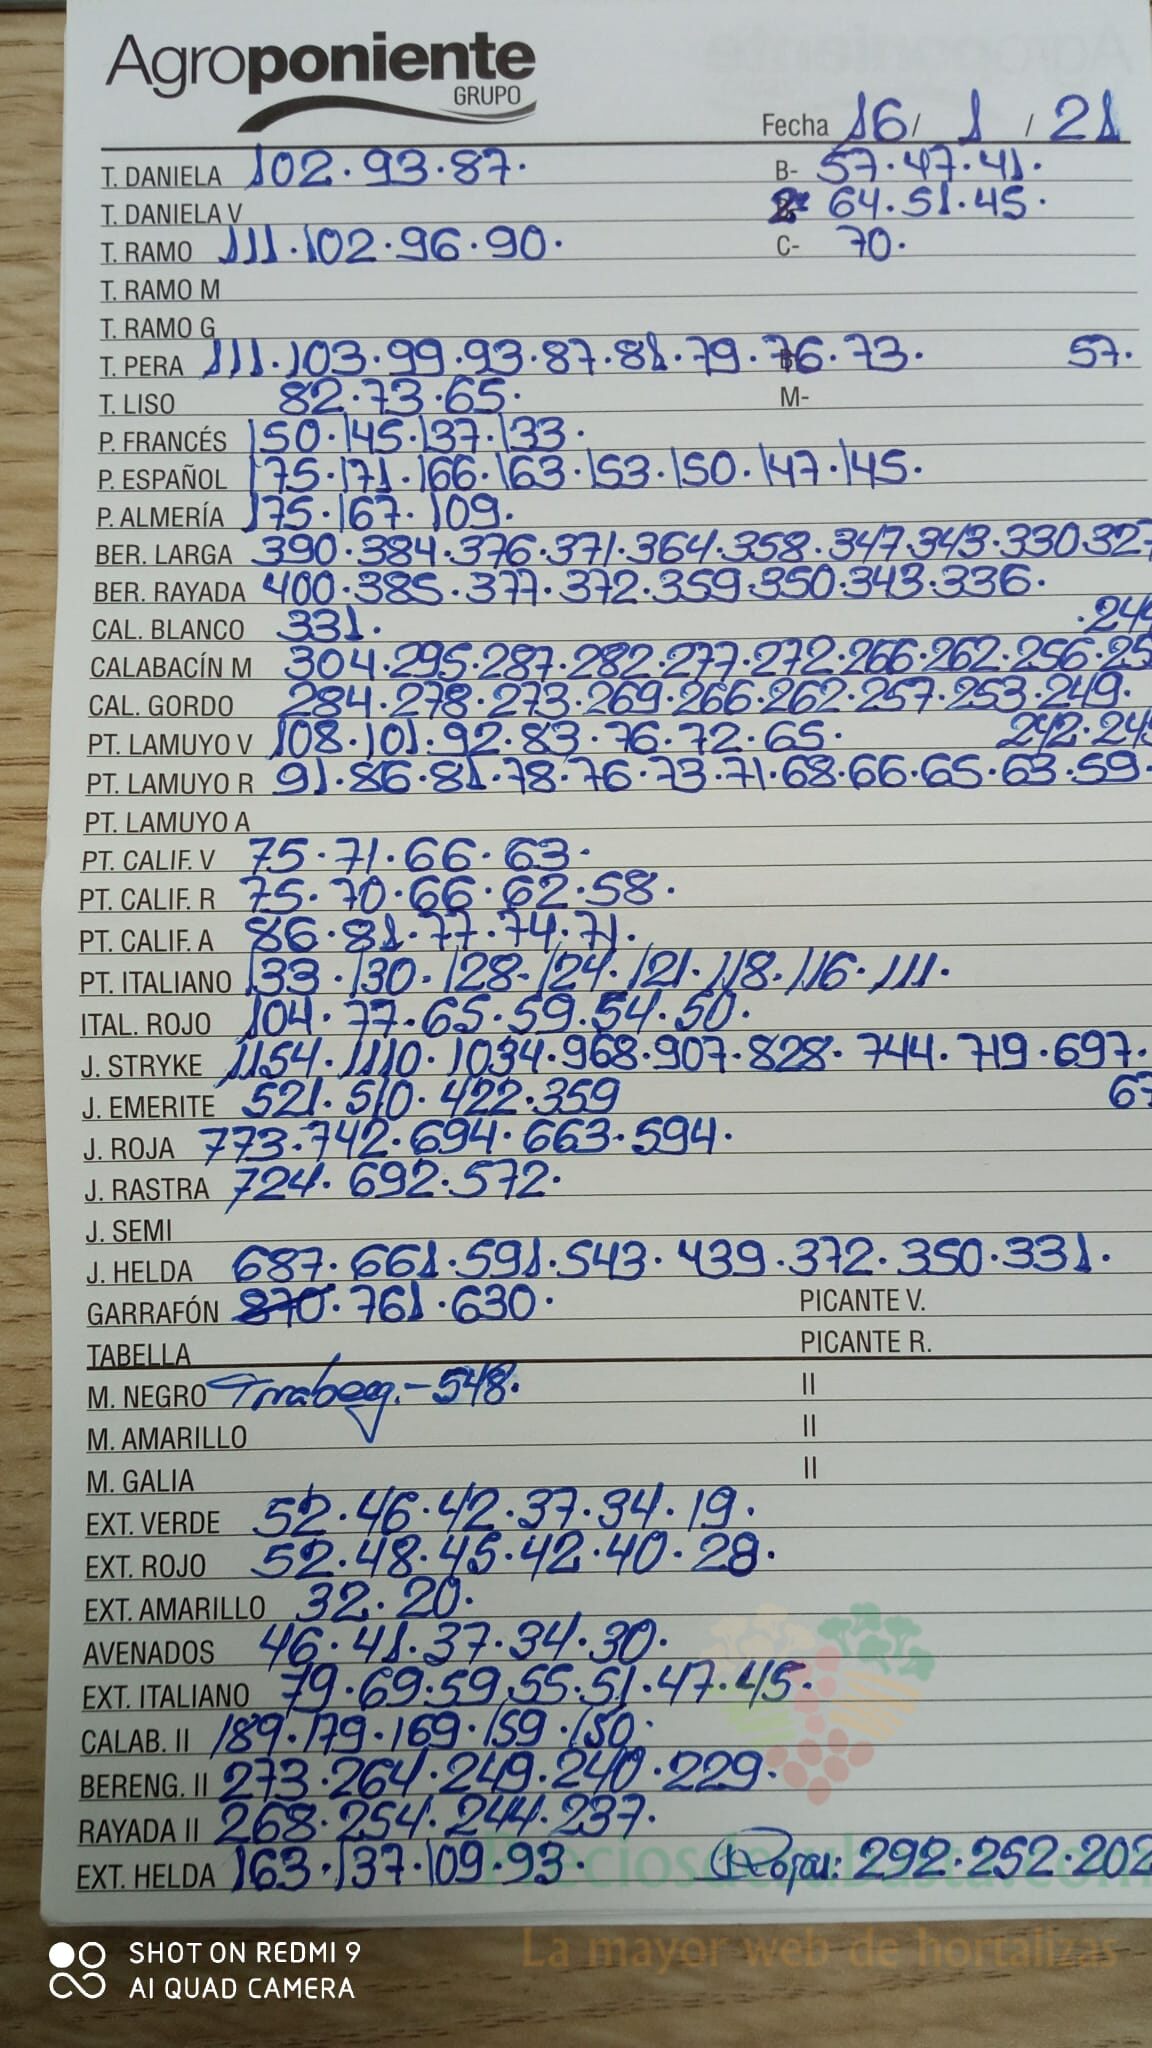 Agroponiente
GRUPO
Fecha 16/ 1 / 21
T. DANIELA 102.93.87. B- 57.47.41.
T. DANIELA V 2ª 64.51.45.
T. RAMO 111.102.96.90. C- 70.
T. RAMO M
T. RAMO G
T. PERA 111.103.99.93.87.81.79.76.73. 57.
T. LISO 82.73.65. M-
P. FRANCÉS 150.145.137.133.
P. ESPAÑOL 175.171.166.163.153.150.147.145.
P. ALMERÍA 175.167.109.
BER. LARGA 390.384.376.371.364.358.347.343.330.327
BER. RAYADA 400.385.377.372.359.350.343.336.
CAL. BLANCO 331. .244
CALABACÍN M 304.295.287.282.277.272.266.262.256.25
CAL. GORDO 284.278.273.269.266.262.257.253.249.
PT. LAMUYO V 108.101.92.83.76.72.65. 242.245
PT. LAMUYO R 91.86.81.78.76.73.71.68.66.65.63.59.
PT. LAMUYO A
PT. CALIF. V 75.71.66.63.
PT. CALIF. R 75.70.66.62.58.
PT. CALIF. A 86.81.77.74.71.
PT. ITALIANO 133.130.128.124.121.118.116.111.
ITAL. ROJO 104.77.65.59.54.50.
J. STRYKE 1154.1110.1034.968.907.828.744.719.697.
J. EMERITE 521.510.422.359 67
J. ROJA 773.742.694.663.594.
J. RASTRA 724.692.572.
J. SEMI
J. HELDA 687.661.591.543.439.372.350.331.
GARRAFÓN 870.761.630. PICANTE V.
TABELLA PICANTE R.
M. NEGRO 548. II
M. AMARILLO II
M. GALIA II
EXT. VERDE 52.46.42.37.34.19.
EXT. ROJO 52.48.45.42.40.28.
EXT. AMARILLO 32.20.
AVENADOS 46.41.37.34.30.
EXT. ITALIANO 79.69.59.55.51.47.45.
CALAB. II 189.179.169.159.150.
BERENG. II 273.264.249.240.229.
RAYADA II 268.254.244.237.
EXT. HELDA 163.137.109.93. Rojas: 292.252.202
Preciosdesubasta.com
La mayor web de hortalizas
SHOT ON REDMI 9
AI QUAD CAMERA